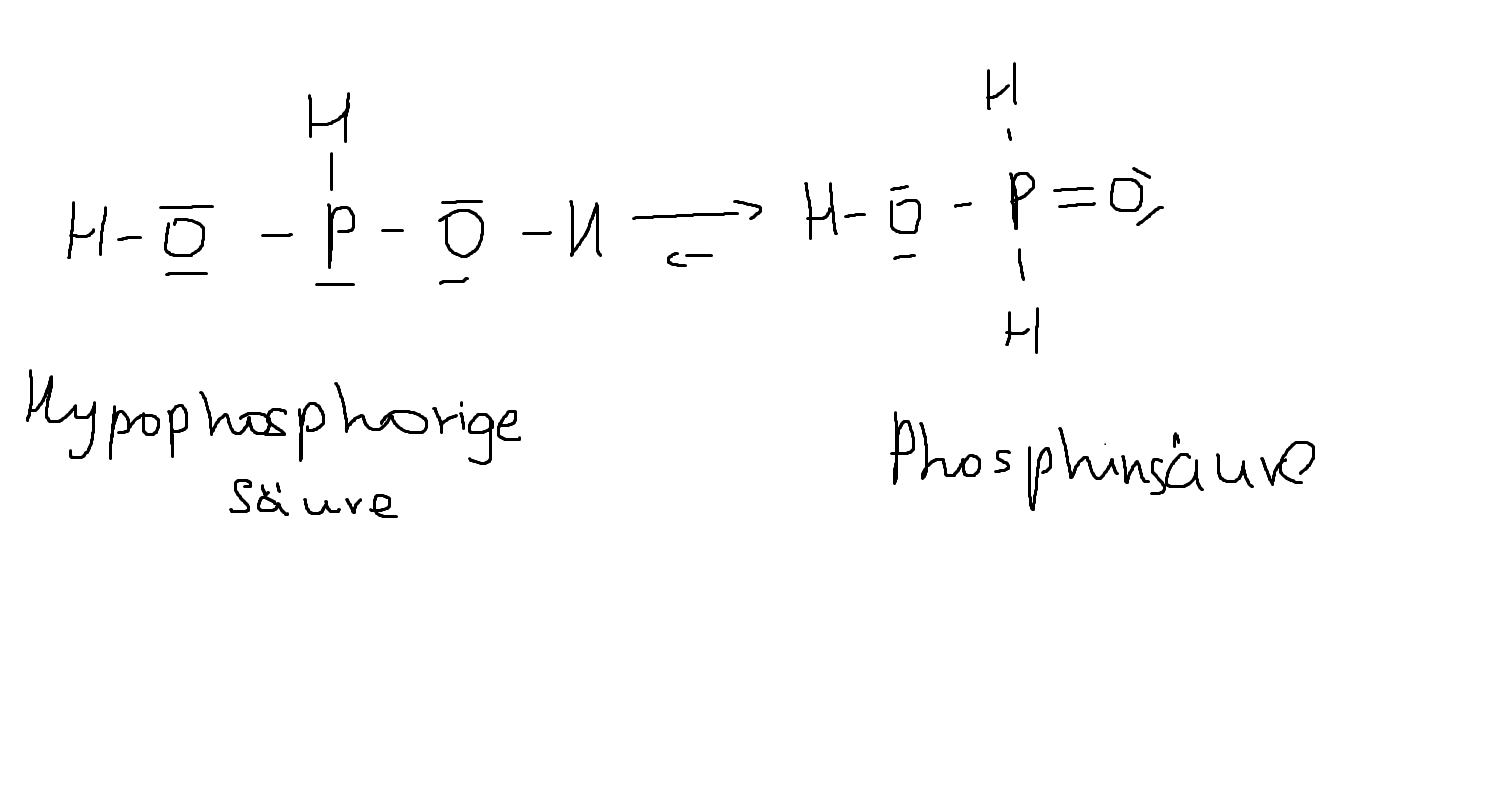 H
H
H-O-P-O-H ⇌ H-O-P=O
H
Hypophosphorige
Säure
Phosphinsäure